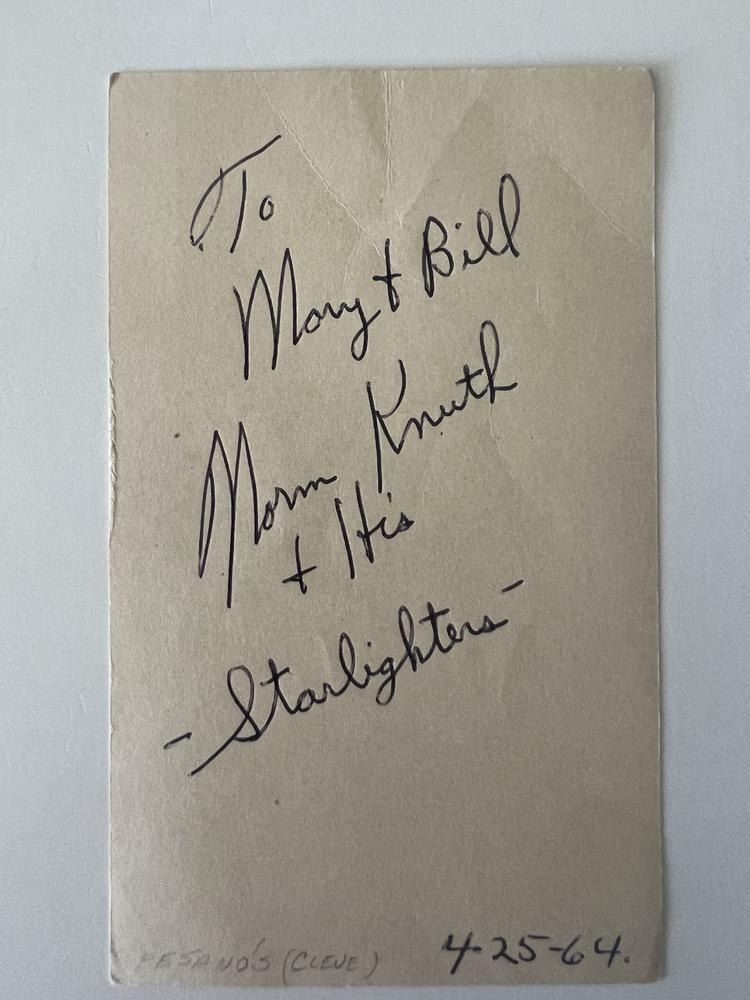 To
Mary + Bill
Norm Knuth
+ His
- Starlighters -
PESANO'S (CLEVE) 4-25-64.